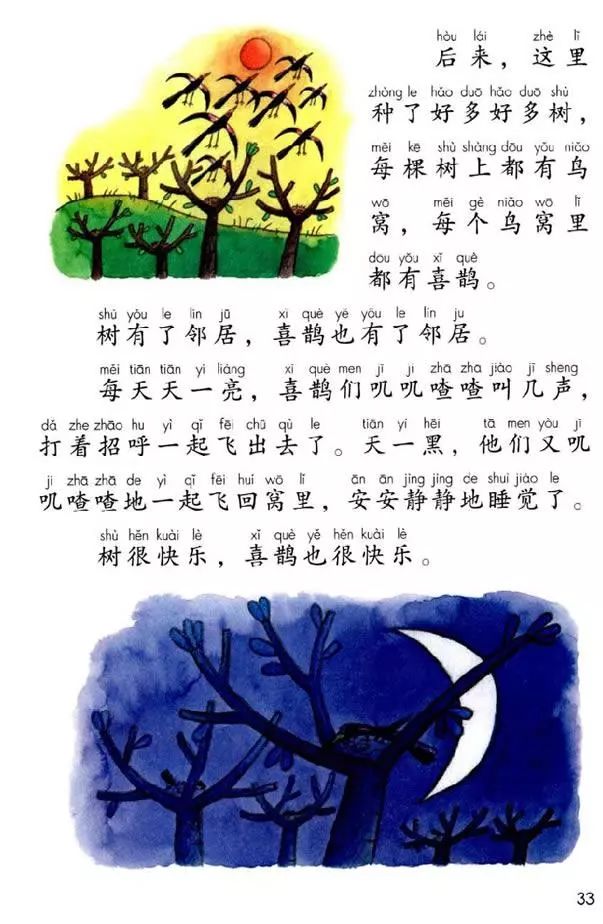 hòu lái zhè lǐ
后来，这里
zhòng le hǎo duō hǎo duō shù
种了好多好多树，
měi kē shù shàng dōu yǒu niǎo
每棵树上都有鸟
wō měi gè niǎo wō lǐ
窝，每个鸟窝里
dōu yǒu xǐ què
都有喜鹊。
shù yǒu le lín jū xǐ què yě yǒu le lín ju
树有了邻居，喜鹊也有了邻居。
měi tiān tiān yí liàng xǐ què men jī jī zhā zha jiào jǐ shēng
每天天一亮，喜鹊们叽叽喳喳叫几声，
dǎ zhe zhāo hu yì qǐ fēi chū qù le tiān yì hēi tā men yòu jī
打着招呼一起飞出去了。天一黑，他们又叽
ji zhā zhā de yì qǐ fēi huí wō lǐ ān ān jìng jìng de shuì jiào le
叽喳喳地一起飞回窝里，安安静静地睡觉了。
shù hěn kuài lè xǐ què yě hěn kuài lè
树很快乐，喜鹊也很快乐。
33